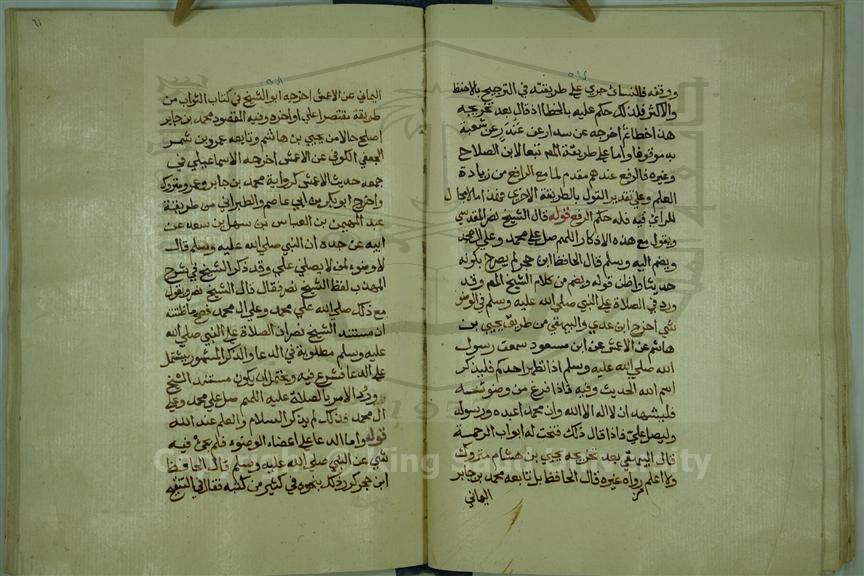 ووقفه فالنسائ جرى على طريقته في الترجيح بالاحفظ
والاكثر فلذلك حكم عليه بالخطا اذ قال بعد تخريجه
هذا خطا ثم اخرجه عن بندار عن غندر عن شعبة
به موقوفا واما على طريقة المص تبعا لابن الصلاح
وغيره فالرفع عندهم مقدم لما مع الرافع من زيادة
العلم وعلى تقدير القول بالطريقة الاخرى فهذا مما لا مجال
للراي فيه فله حكم الرفع قوله قال الشيخ نصر المقدسي
ويقول مع هذه الاذكار اللهم صل على محمد وعلى ال محمد
ويضم اليه وسلم قال الحافظ ابن حجر لم يصرح بكونه
حديثا واظن قوله ويضم من كلام الشيخ المص وقد
ورد في الصلاة على النبي صلى الله عليه وسلم في الوضوء
شي اخرج ابن عدي والبيهقي من طريق يحيى بن
هاشم عن الاعمش عن ابن مسعود سمعت رسول
الله صلى الله عليه وسلم اذا تطهر احدكم فليذكر
اسم الله الحديث وفيه فاذا فرغ من وضوئه
فليشهد ان لا اله الا الله وان محمد اعبده ورسوله
وليصل علي فاذا قال ذلك فتحت له ابواب الرحمة
قال البيهقي بعد تخريجه يحيى بن هشام متروك
ولا اعلم رواه غيره قال الحافظ بل تابعه محمد بن جابر
اليماني
٦١
اليماني عن الاعمش اخرجه ابو الشيخ في كتاب الثواب من
طريقة مقتصرا على اواخره وفيه المقصود محمد بن جابر
اصلح حالا من يحيى بن هاشم وتابعه عمرو بن شمر
الجعفي الكوفي عن الاعمش اخرجه الاسماعيلي في
جمعه حديث الاعمش كرواية محمد بن جابر وعمرو متروك
واخرج ابو بكر بن ابي عاصم والطبراني من طريقة
عبد المهيمن بن العباس بن سهل بن سعد عن
ابيه عن جده ان النبي صلى الله عليه وسلم قال
لا وضوء لمن لا يصلي علي وقد ذكر الشيخ في شرح
المهذب لفظ الشيخ نصر فقال قال الشيخ نصر ويقول
مع ذلك صلى الله على محمد وعلى ال محمد فصح ما ظننته
ان مستند الشيخ نصر ان الصلاة على النبي صلى الله
عليه وسلم مطلوبة في الدعا والذكر المشهور يشتمل
على الدعا فشرع فيه ويحتمل ان يكون مستند الشيخ
ورود الامر بالصلاة عليه اللهم صل على محمد وعلى
ال محمد فذلك لم يذكر السلام والعلم عند الله
قوله واما الدعا على اعضاء الوضوء فلم يجئ فيه
شي عن النبي صلى الله عليه وسلم قال الحافظ
ابن حجر كرر ذلك بنحوه في كثير من كتبه فقال في التنقيح
Copyright © King Saud University
1957